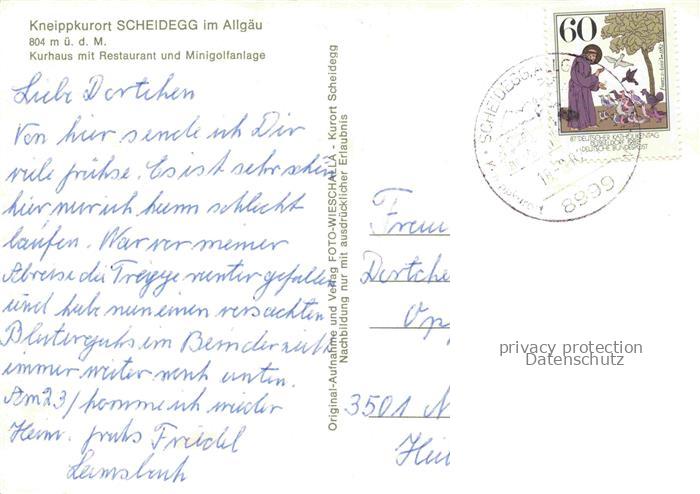 Kneippkurort SCHEIDEGG im Allgäu
804 m ü. d. M.
Kurhaus mit Restaurant und Minigolfanlage
Liebe Dortchen
Von hier sende ich Dir
viele Grühse. Es ist sehr schön
hier nur ich kann schlecht
laufen. War vor meiner
Abreise die Treppe runter gefallen
und habe nun einen versackten
Bluterguhs im Bein der zieht
immer weiter nach unten.
Am 23/ komme ich wieder
Heim. gruhs Friedel
Original-Aufnahme und Verlag FOTO-WIESCHALLA - Kurort Scheidegg
Nachbildung nur mit ausdrücklicher Erlaubnis
60
87. DEUTSCHER KATHOLIKENTAG
DÜSSELDORF 1982
DEUTSCHE BUNDESPOST
SCHEIDEGG, ALLG
8999
Frau
Dortche
3501
privacy protection
Datenschutz